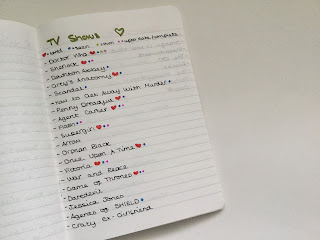 TV Shows
loved seen
- Doctor Who
- Sherlock
- Downton Abbey
- Grey's Anatomy
- Scandal
- How to Get Away With Murder
- Penny Dreadful
- Agent Carter
- Supergirl
- Arrow
- Orphan Black
- Once Upon A Time
- Victoria
- War and Peace
- Game of Thrones
- Daredevil
- Jessica Jones
- Agents of SHIELD
- Crazy Ex-Girlfriend